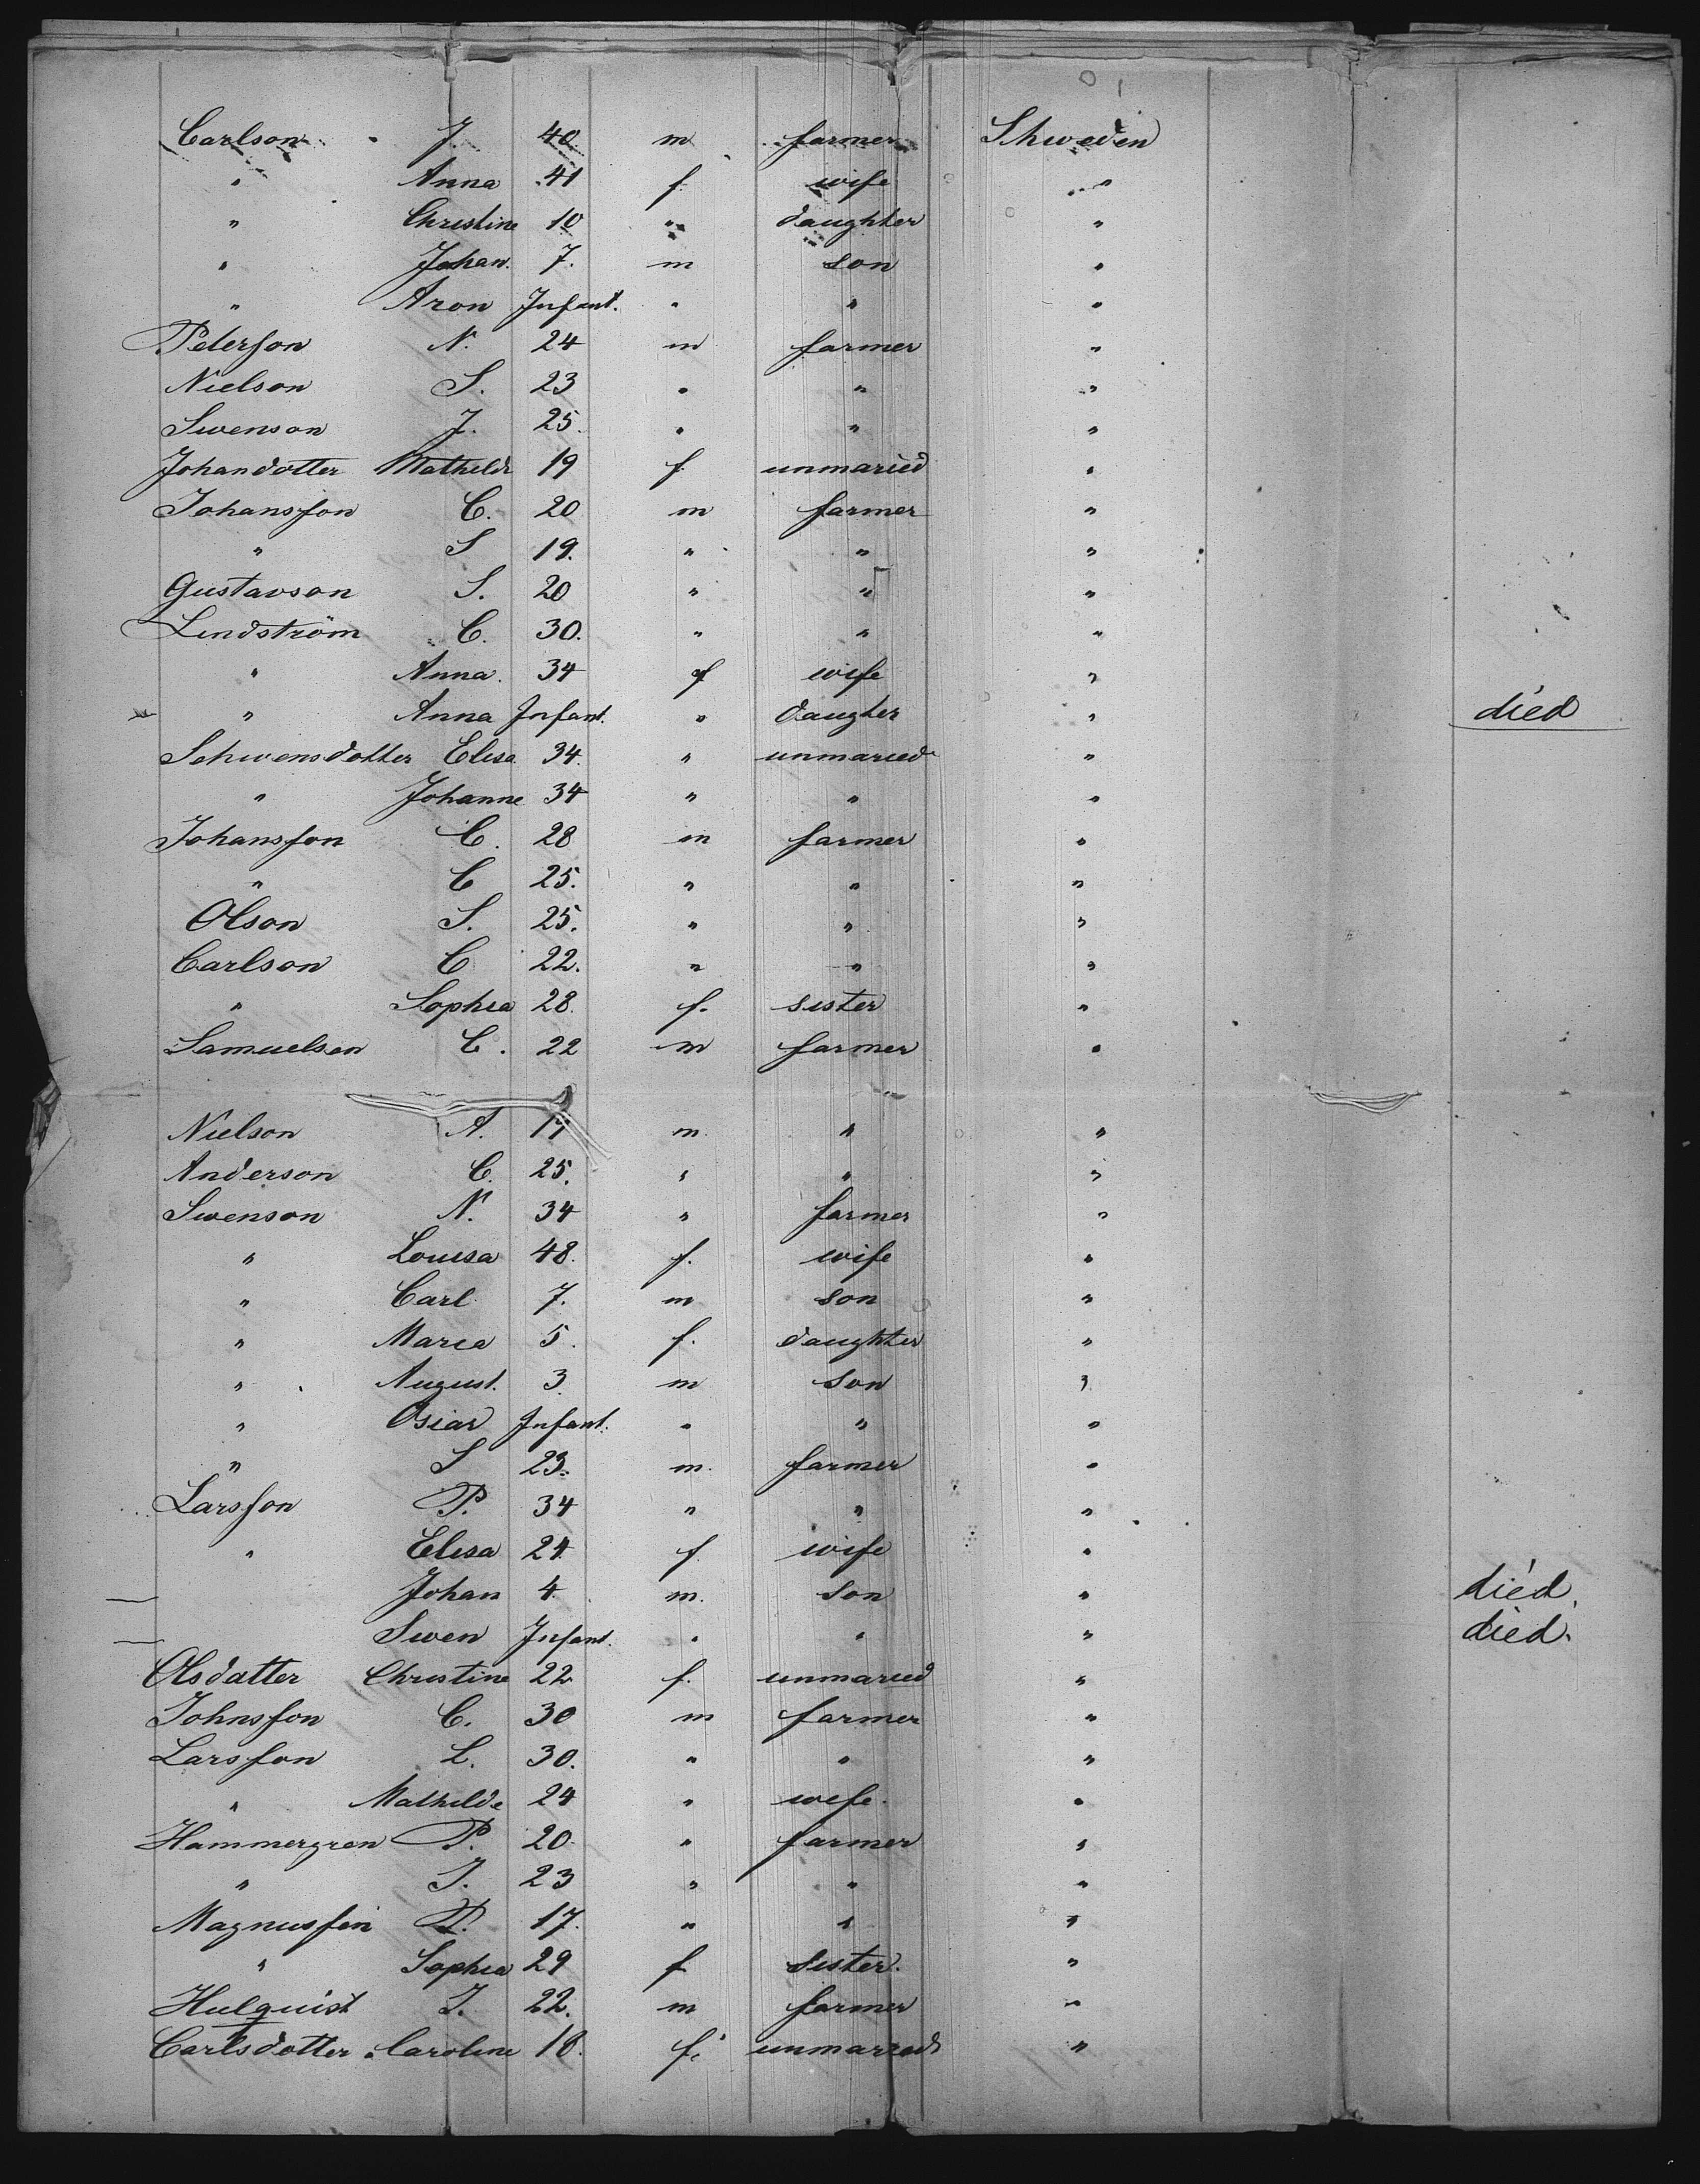 Carlson J. 40 m farmer Schweden
" Anna 41 f wife "
" Christine 10 " daughter "
" Johan. 7. m son "
" Aron Infant. " " "
Peterson N. 24 m farmer "
Nielson S. 23 " " "
Swenson J. 25. " " "
Johandotter Mathilde 19 f unmaried "
Johansson C. 20 m farmer "
" S 19. " " "
Gustavson S. 20 " " "
Lindström C. 30. " " "
" Anna. 34 f wife "
" Anna Infant. " daugter " died
Schwensdotter Elisa 34. " unmaried "
" Johanne 34 " " "
Johansson C. 28 m farmer "
" C 25. " " "
Olson S. 25. " " "
Carlson C 22. " " "
" Sophia 28. f. sister "
Samuelsen C. 22 m farmer "
Nielson A. m. " "
Anderson C. 25. " " "
Swenson N. 34 " farmer "
" Louisa 48. f. wife "
" Carl 7. m son "
" Maria 5. f. daughter "
" August. 3 m son "
" Oscar Infant. " " "
" S 23. m. farmer "
Larsson P. 34 " " "
" Elisa 24. f wife "
Johan 4. m. son " died.
Swen Infant. " " " died.
Olsdatter Christine 22 f. unmaried "
Johnsson C. 30 m farmer "
Larsson L. 30. " " "
" Mathilde 24 " wife. "
Hammergren P. 20. " farmer "
" J. 23 " " "
Magnussen P. 17. " " "
" Sophia 29 f sister. "
Hulquist J. 22. m farmer "
Carlsdotter Caroline 18. f. unmarried "